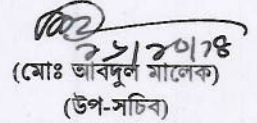 (মোঃ আবদুল মালেক)
(উপ-সচিব)